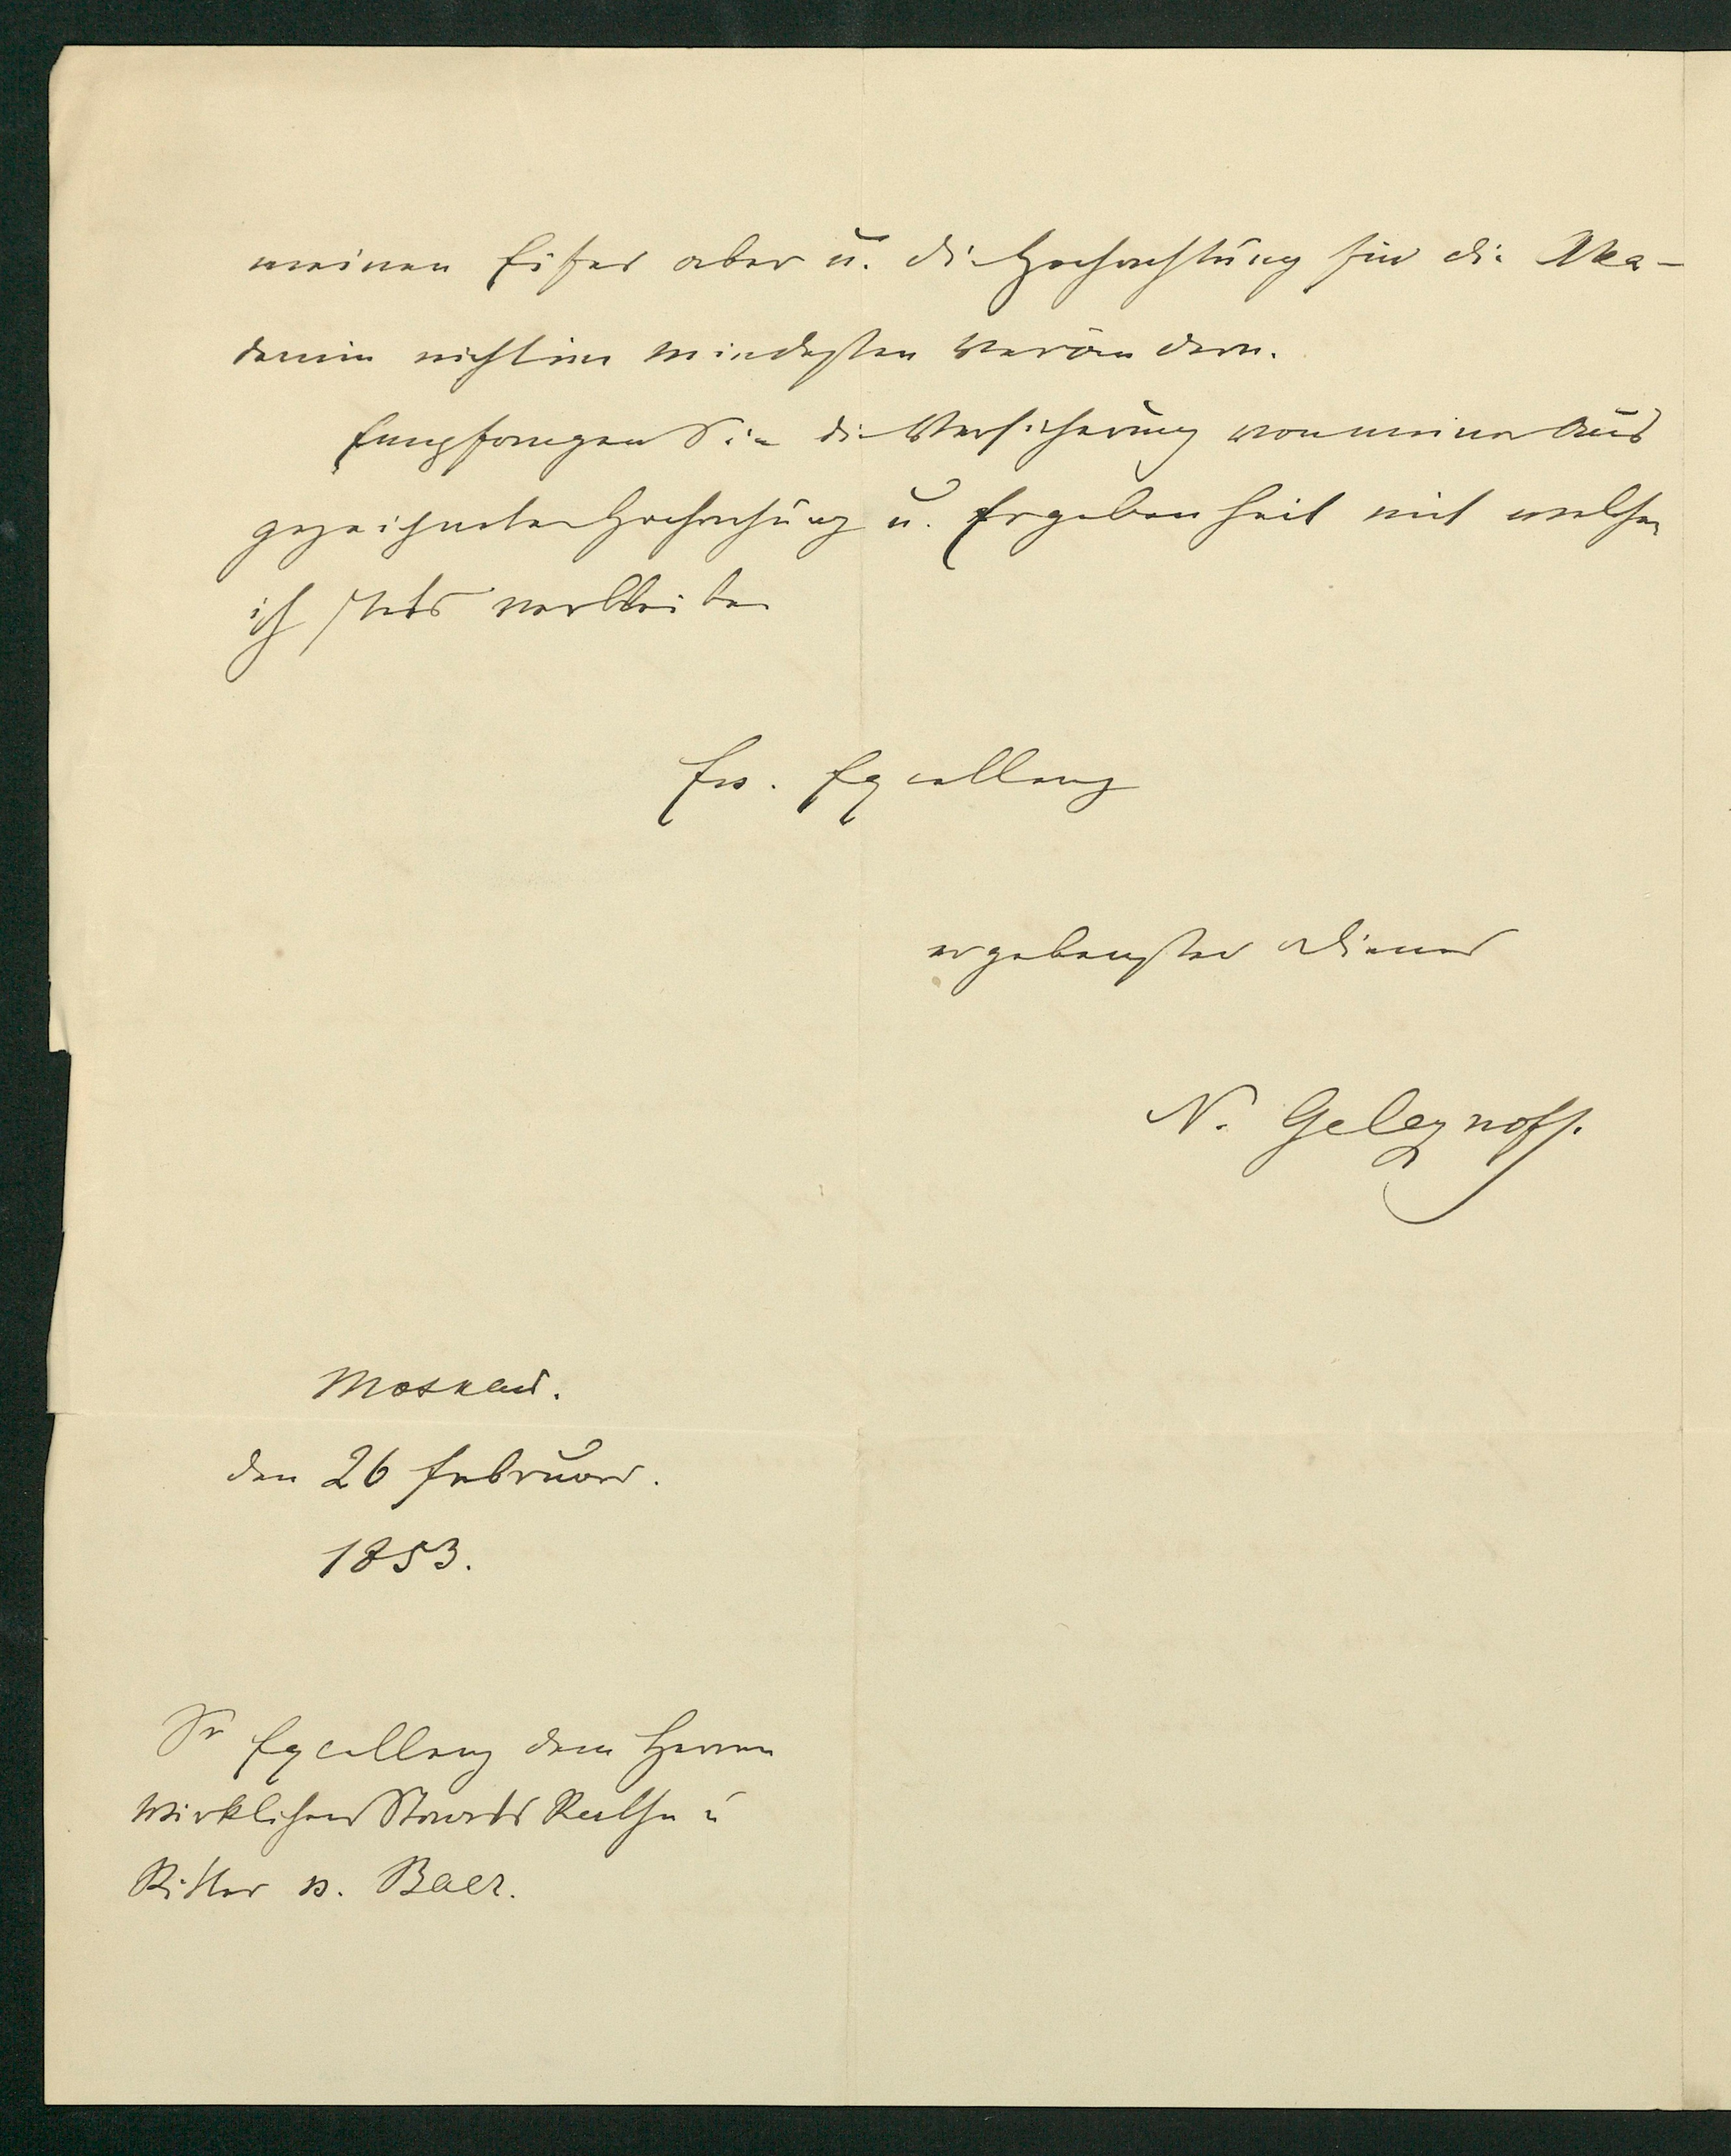 meinen Eifer aber u. die Hochachtung für die Aka-
demie nicht im mindesten verändern.
Empfangen Sie die Versicherung von meiner Aus
gezeichneten Hochachtung u. Ergebenheit mit welcher
ich stets verbleibe
Ew. Excellenz
ergebenster Diener
N. Geleznoff.
Moskau.
den 26 Februar.
1853.
Sr Excellenz dem Herren
Wirklichen Staats Rathe u
Ritter v. Baer.